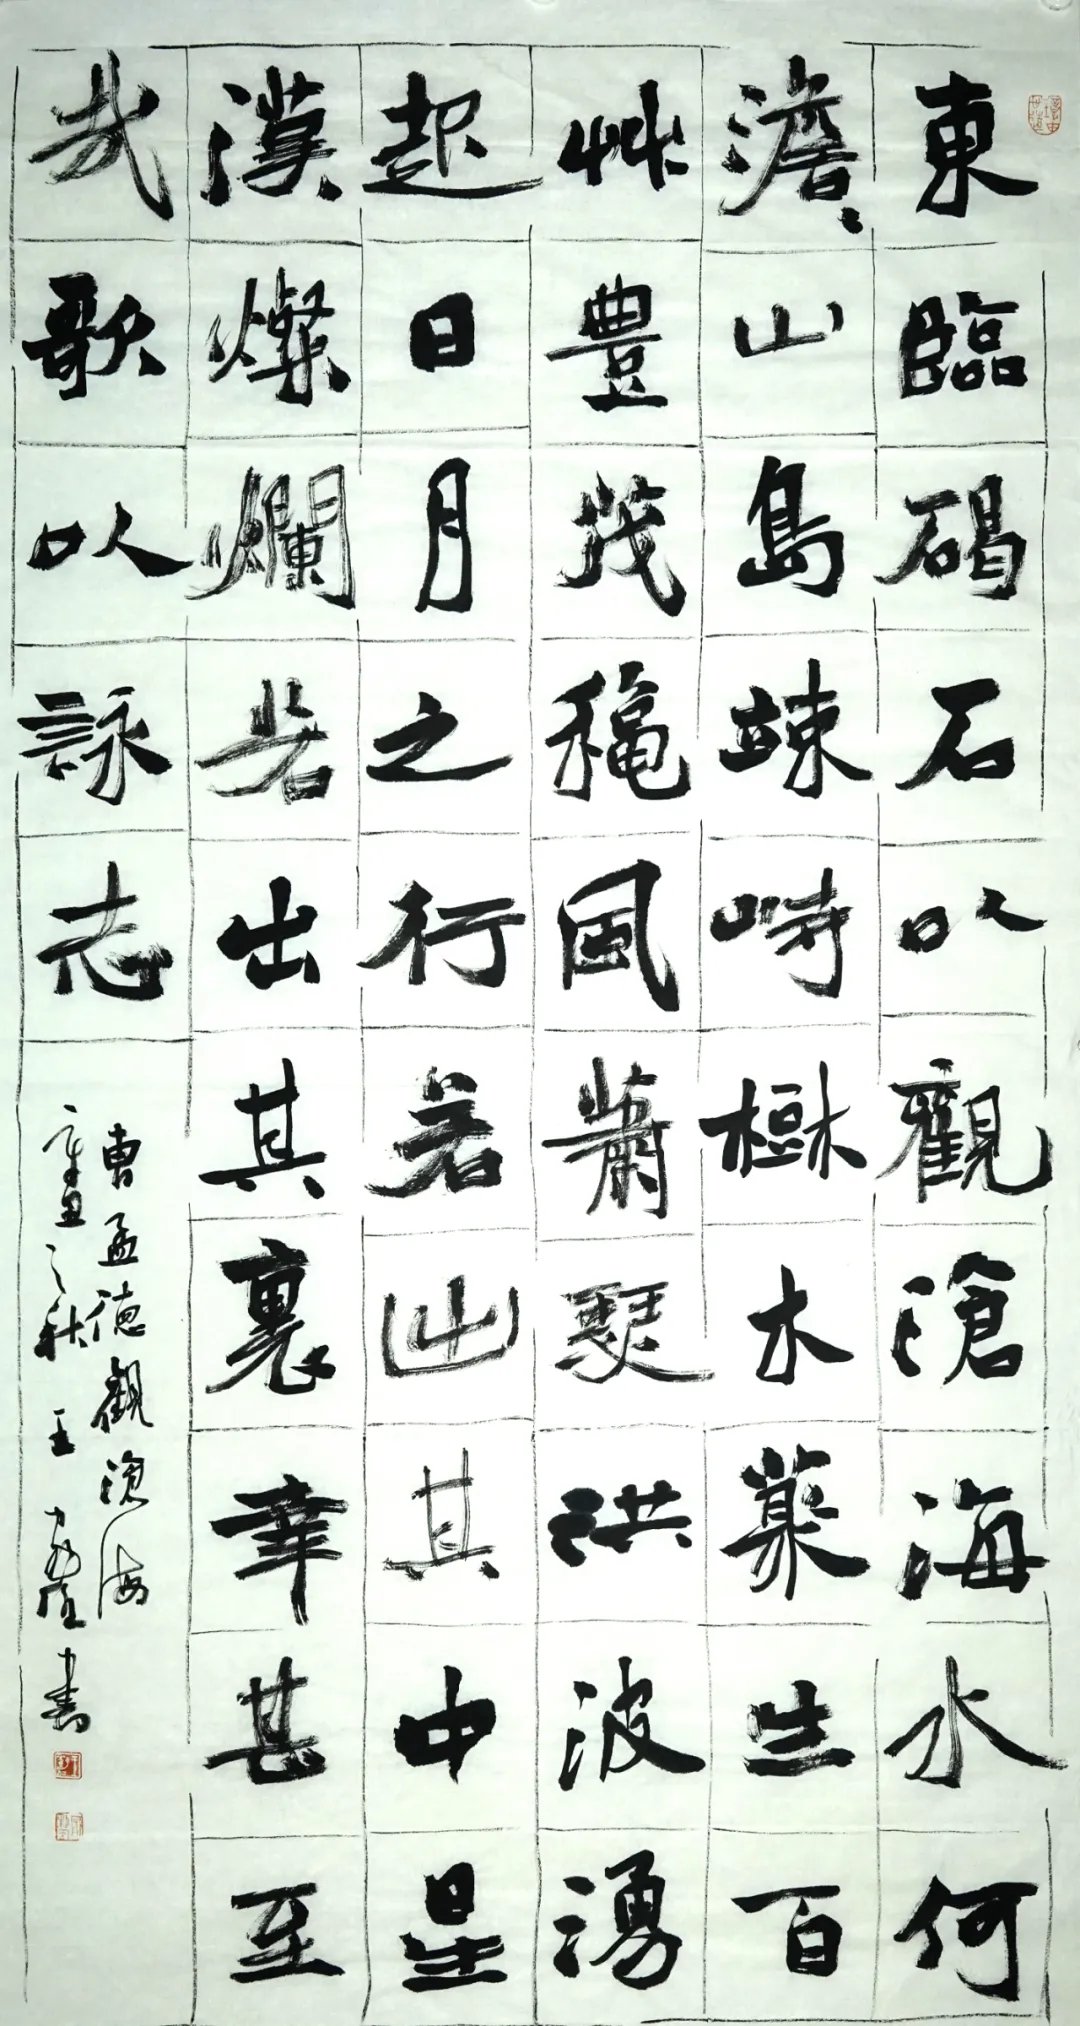 東臨碣石以觀滄海水何
澹、山島竦峙樹木叢生百
艸豐茂穐風蕭瑟洪波湧
起日月之行若出其中星
漢燦爛若出其裏幸甚至
哉歌以詠志
曹孟德觀滄海
辛丑之秋 王 書